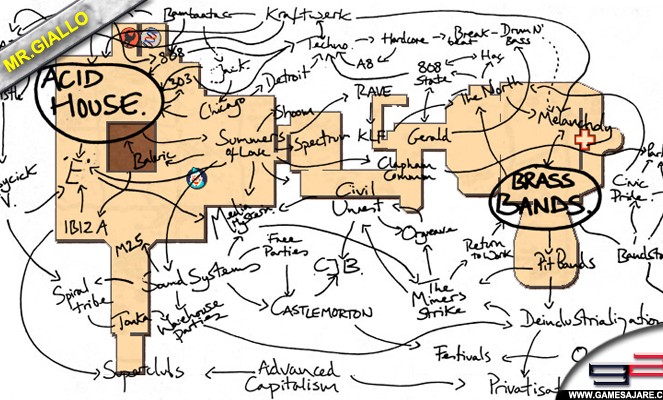 MR.GIALLO
Bambaataa
Kraftwerk
Techno
Hardcore
Break-
beat
Drum N'
Bass
808
303
Jack
Detroit
A8
808
State
Hac
ACID
HOUSE.
Chicago
Shoom
RAVE
The North
Melancholy
Summers
of Love
Spectrum
KLF
Gerald
Balaric
E.
Clapham
Common
BRASS
BANDS.
Civic
Pride
Civil
Unrest
Media
Hysteria
IBIZA
M25
Free
Parties
Orgreave
Return
to Work
Pit Bands
Sound Systems
CJB.
The
Miners
Strike
Spiral
tribe
Tonka
Warehouse
Parties
CASTLEMORTON
Deindustrialization
Festivals
Superclubs
Advanced
Capitalism
WWW.GAMESAJARE.COM